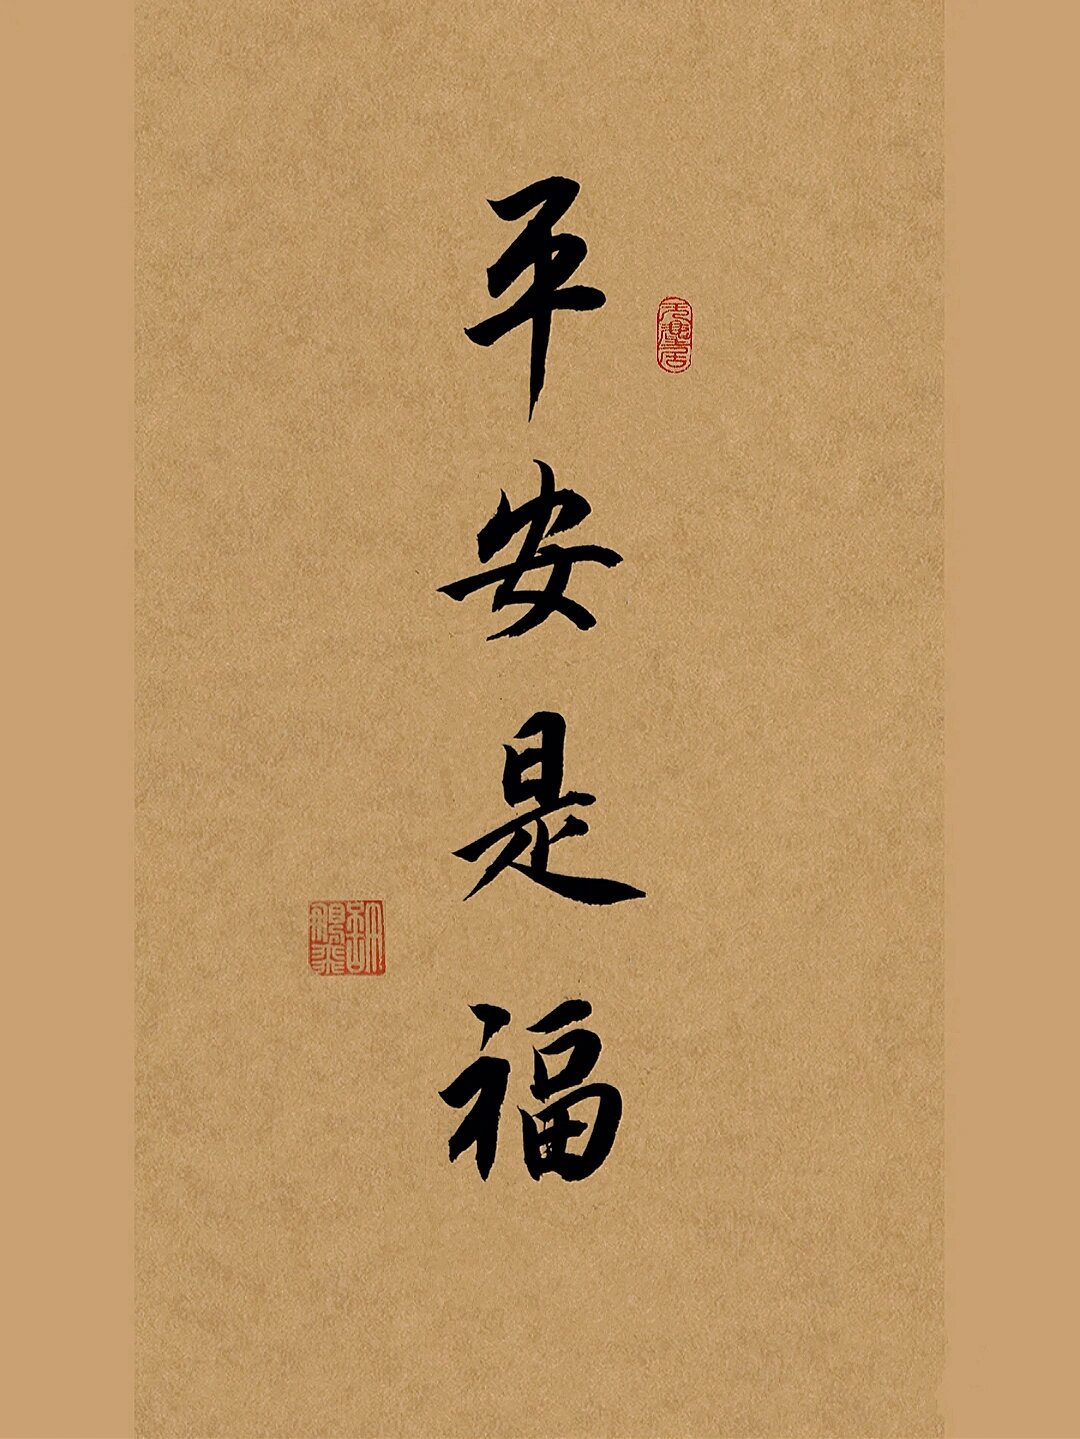 平安是福